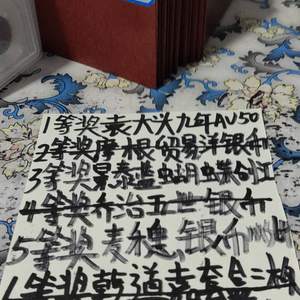 1等奖袁大头九年AU50
2等奖摩根贸易洋银币
3等奖景泰蓝蝴蝶
4等奖乔治五世银币
5等奖麦穗,银币
等奖乾道元